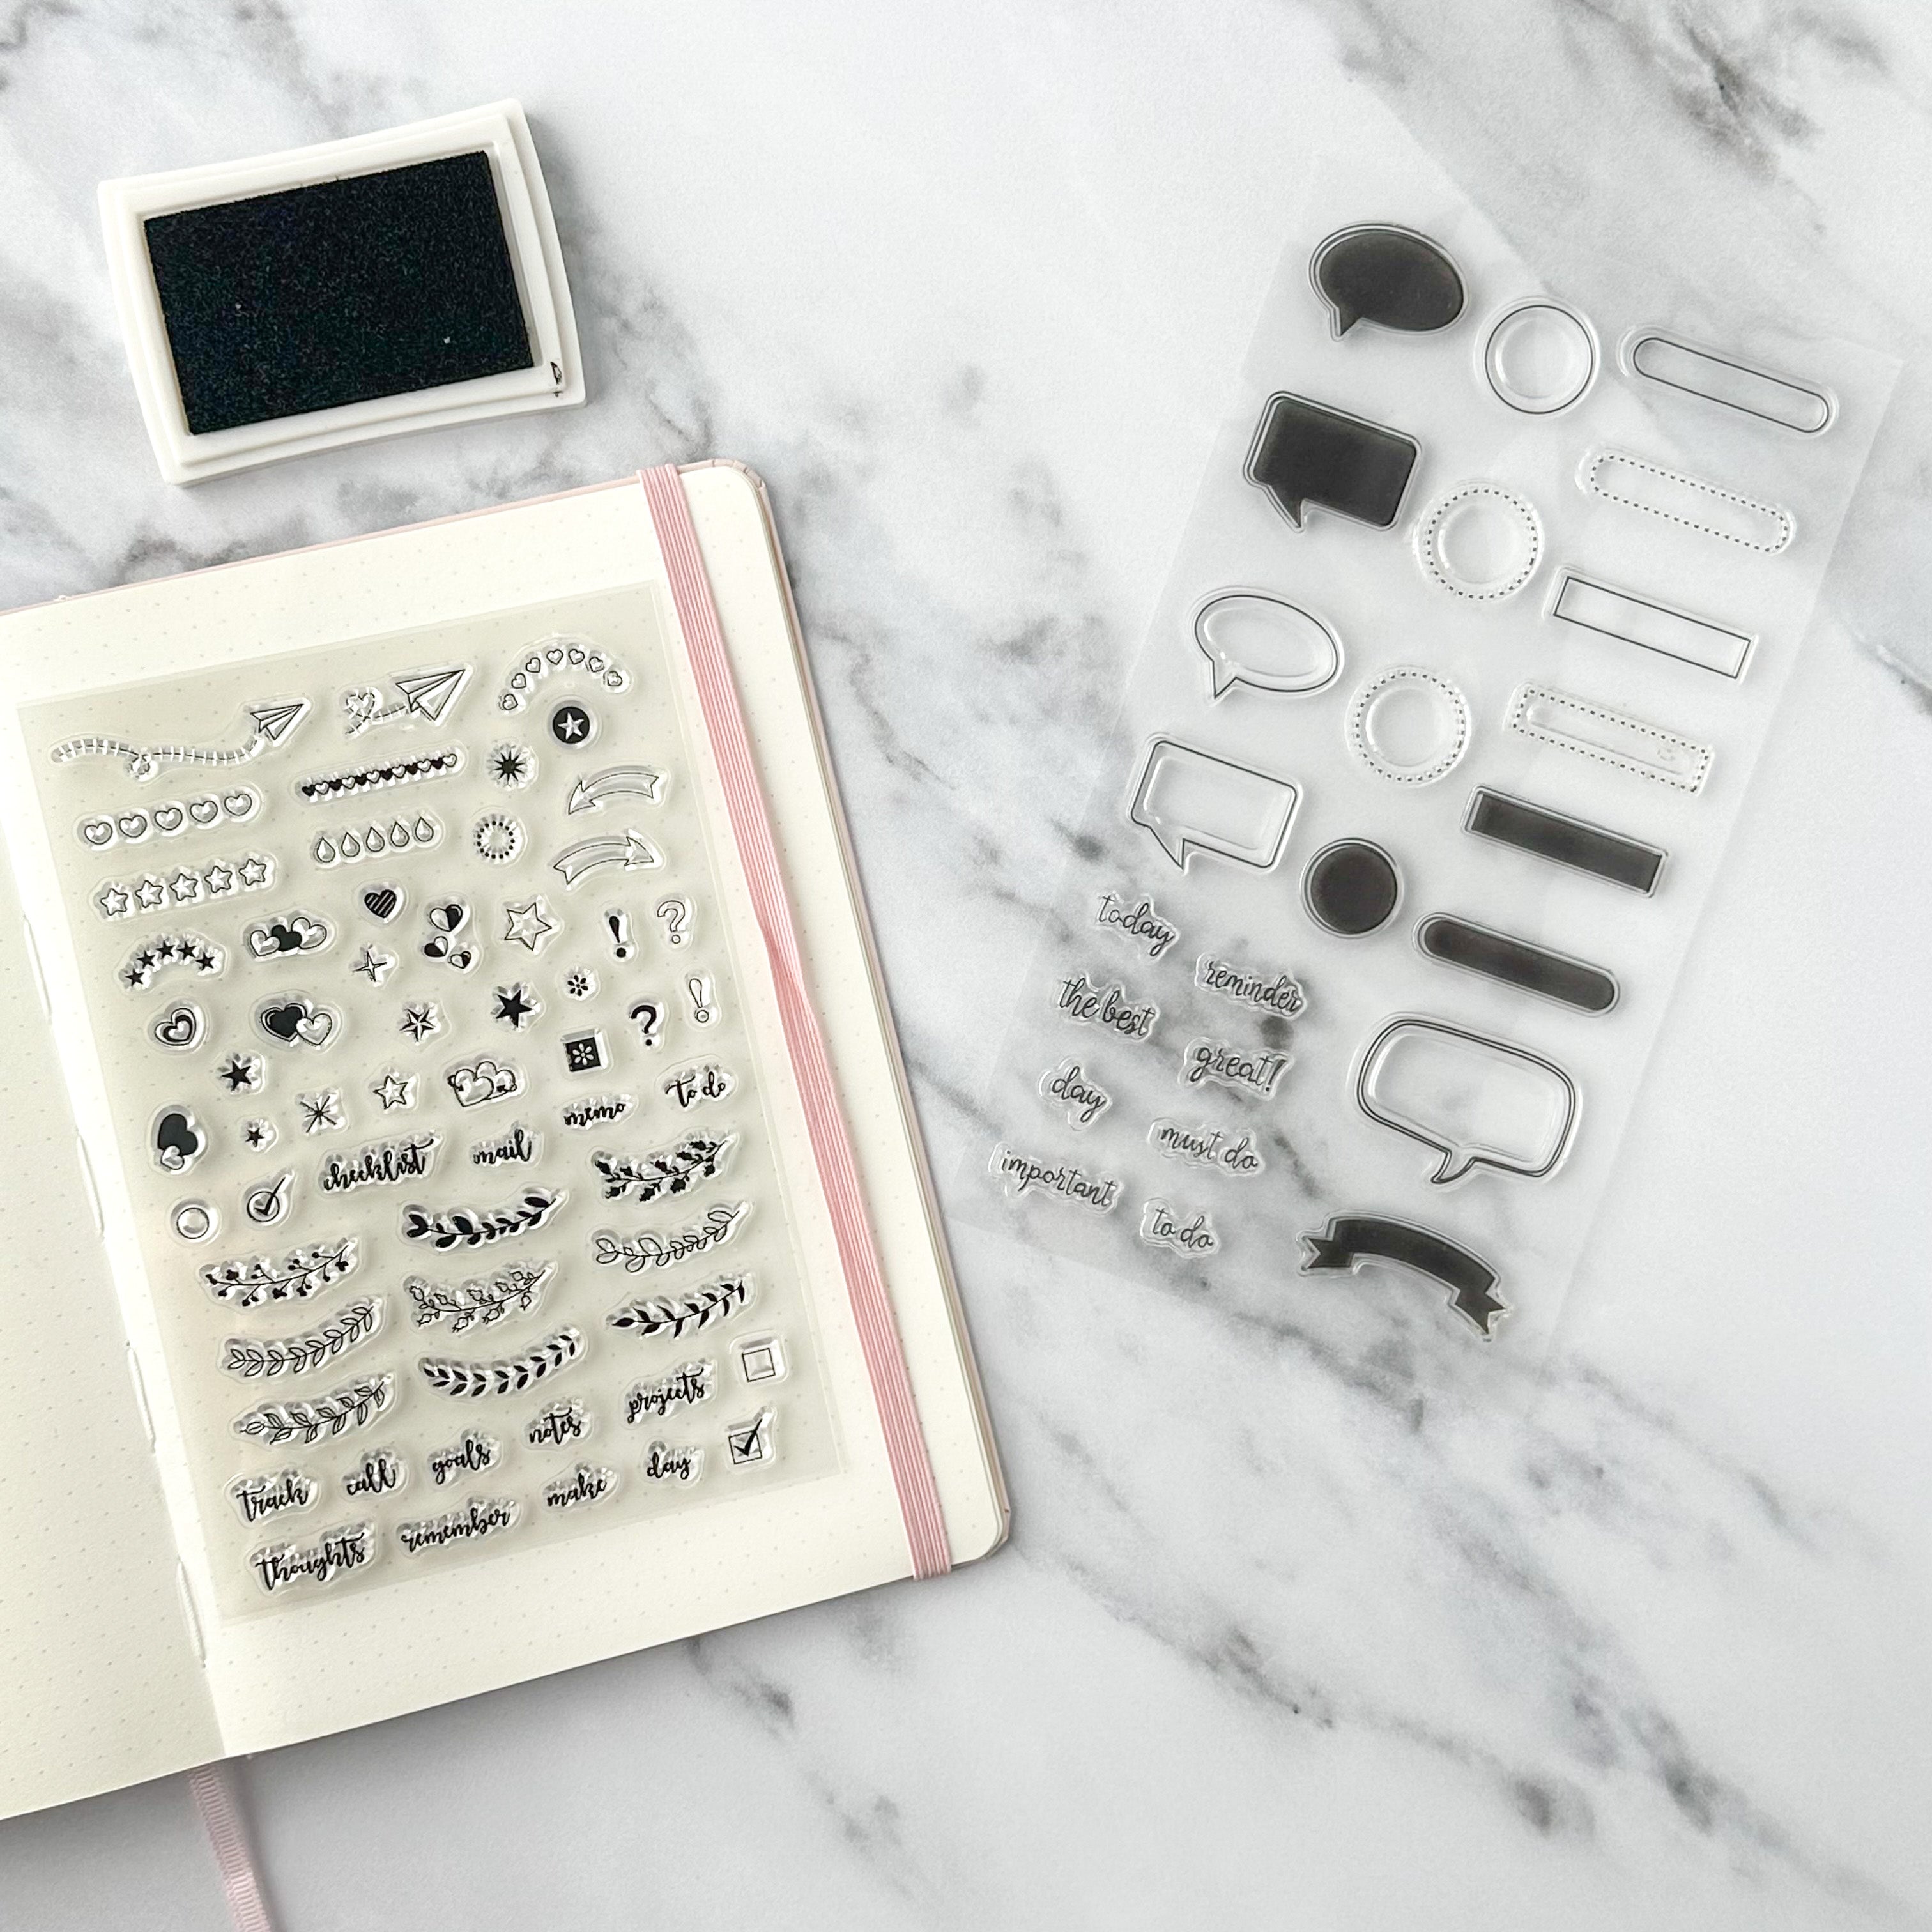 to do
memo
mail
checklist
projects
notes
goals
call
track
day
make
remember
thoughts
today
reminder
the best
great!
day
must do
important
to do